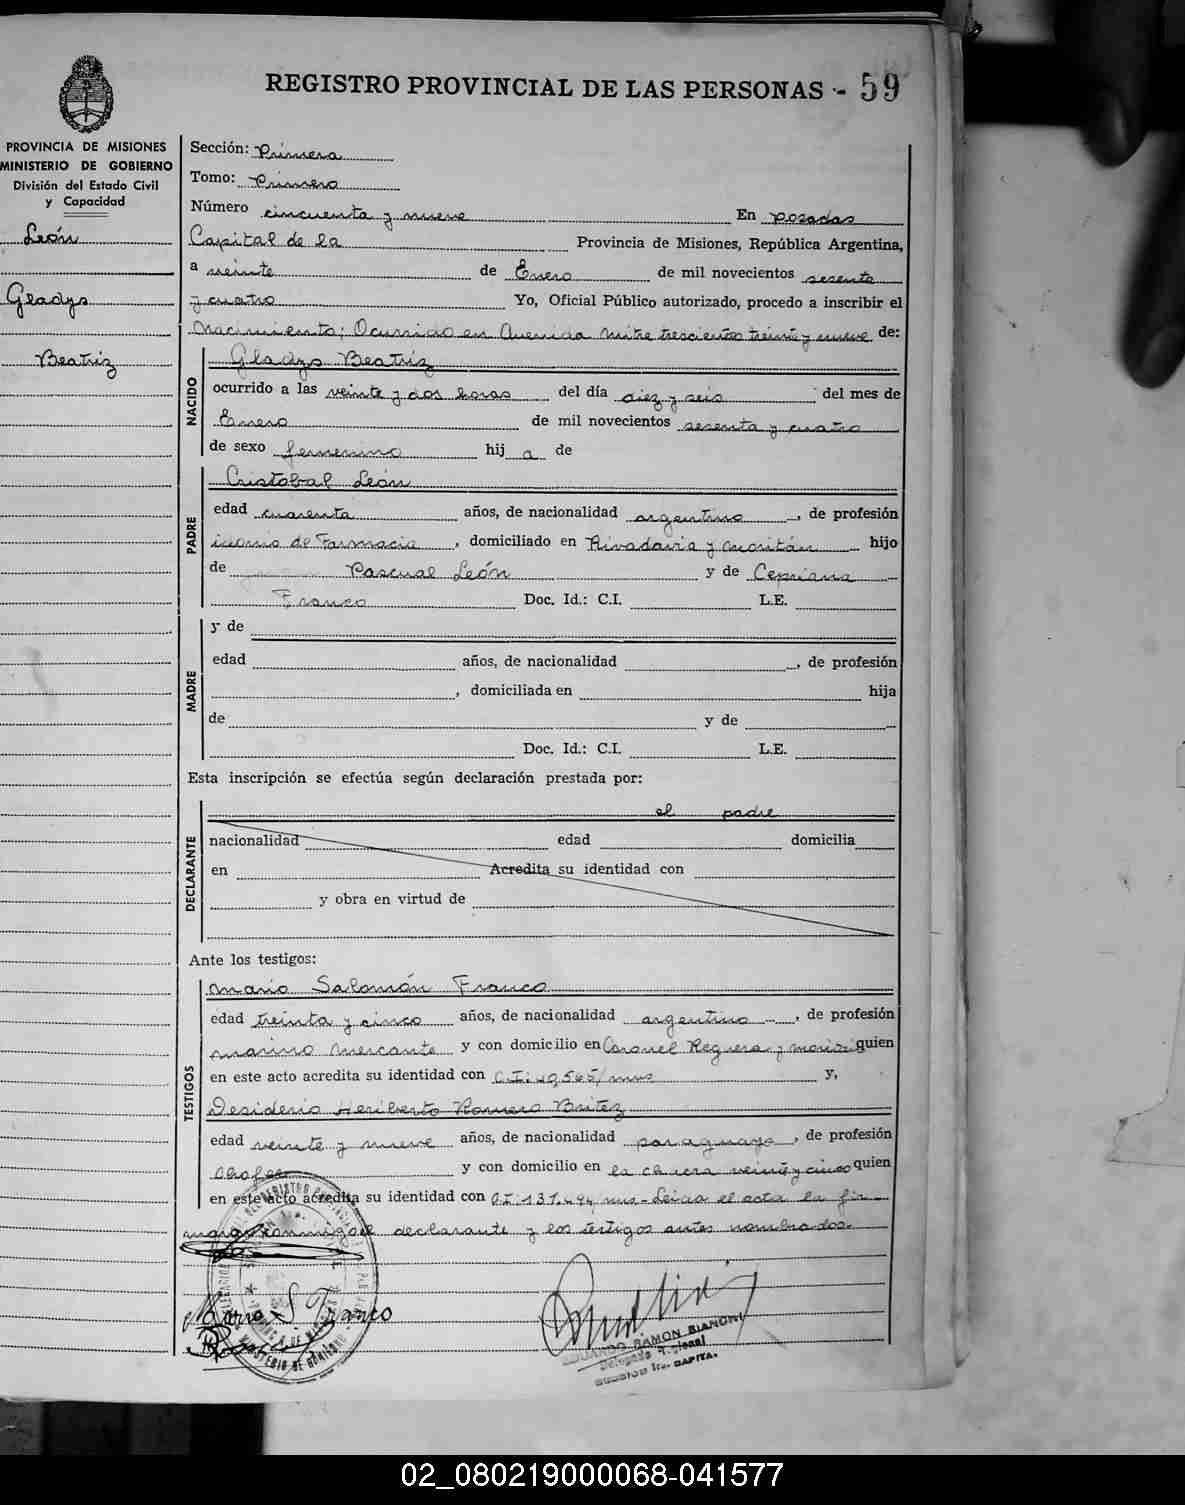 REGISTRO PROVINCIAL DE LAS PERSONAS - 59
PROVINCIA DE MISIONES
MINISTERIO DE GOBIERNO
División del Estado Civil
y Capacidad
León
Gladys
Beatriz
Sección: Primera
Tomo: Primero
Número cincuenta y nueve En Posadas
Capital de la Provincia de Misiones, República Argentina,
a veinte de Enero de mil novecientos sesenta
y cuatro Yo, Oficial Público autorizado, procedo a inscribir el
Nacimiento; Ocurrido en Avenida Mitre trescientos treinta y nueve de:
NACIDO
Gladys Beatriz
ocurrido a las veinte y dos horas del día diez y seis del mes de
Enero de mil novecientos sesenta y cuatro
de sexo femenino hij a de
PADRE
Cristobal León
edad cuarenta años, de nacionalidad argentino, de profesión
idoneo de Farmacia, domiciliado en Rivadavia y Moritán hijo
de Pascual León y de Cepriana
Franco Doc. Id.: C.I. L.E.
MADRE
y de
edad años, de nacionalidad , de profesión
, domiciliada en hija
de y de
Doc. Id.: C.I. L.E.
Esta inscripción se efectúa según declaración prestada por:
DECLARANTE
el padre
nacionalidad edad domicilia
en Acredita su identidad con
y obra en virtud de
Ante los testigos:
TESTIGOS
Mario Salomón Franco
edad treinta y cinco años, de nacionalidad argentino, de profesión
marino mercante y con domicilio en Coronel Reguera y quien
en este acto acredita su identidad con C.I: y,
Desiderio Heriberto Romero Britez
edad veinte y nueve años, de nacionalidad paraguayo, de profesión
chofer y con domicilio en la chacra veinte y cinco quien
en este acto acredita su identidad con C.I: - Leida el acta la fir-
el declarante y los testigos antes nombrados.-
Mario S Franco
EDUARDO RAMON BIANCHI
Delegado Regional
SECCION 1ra. CAPITAL
02_080219000068-041577